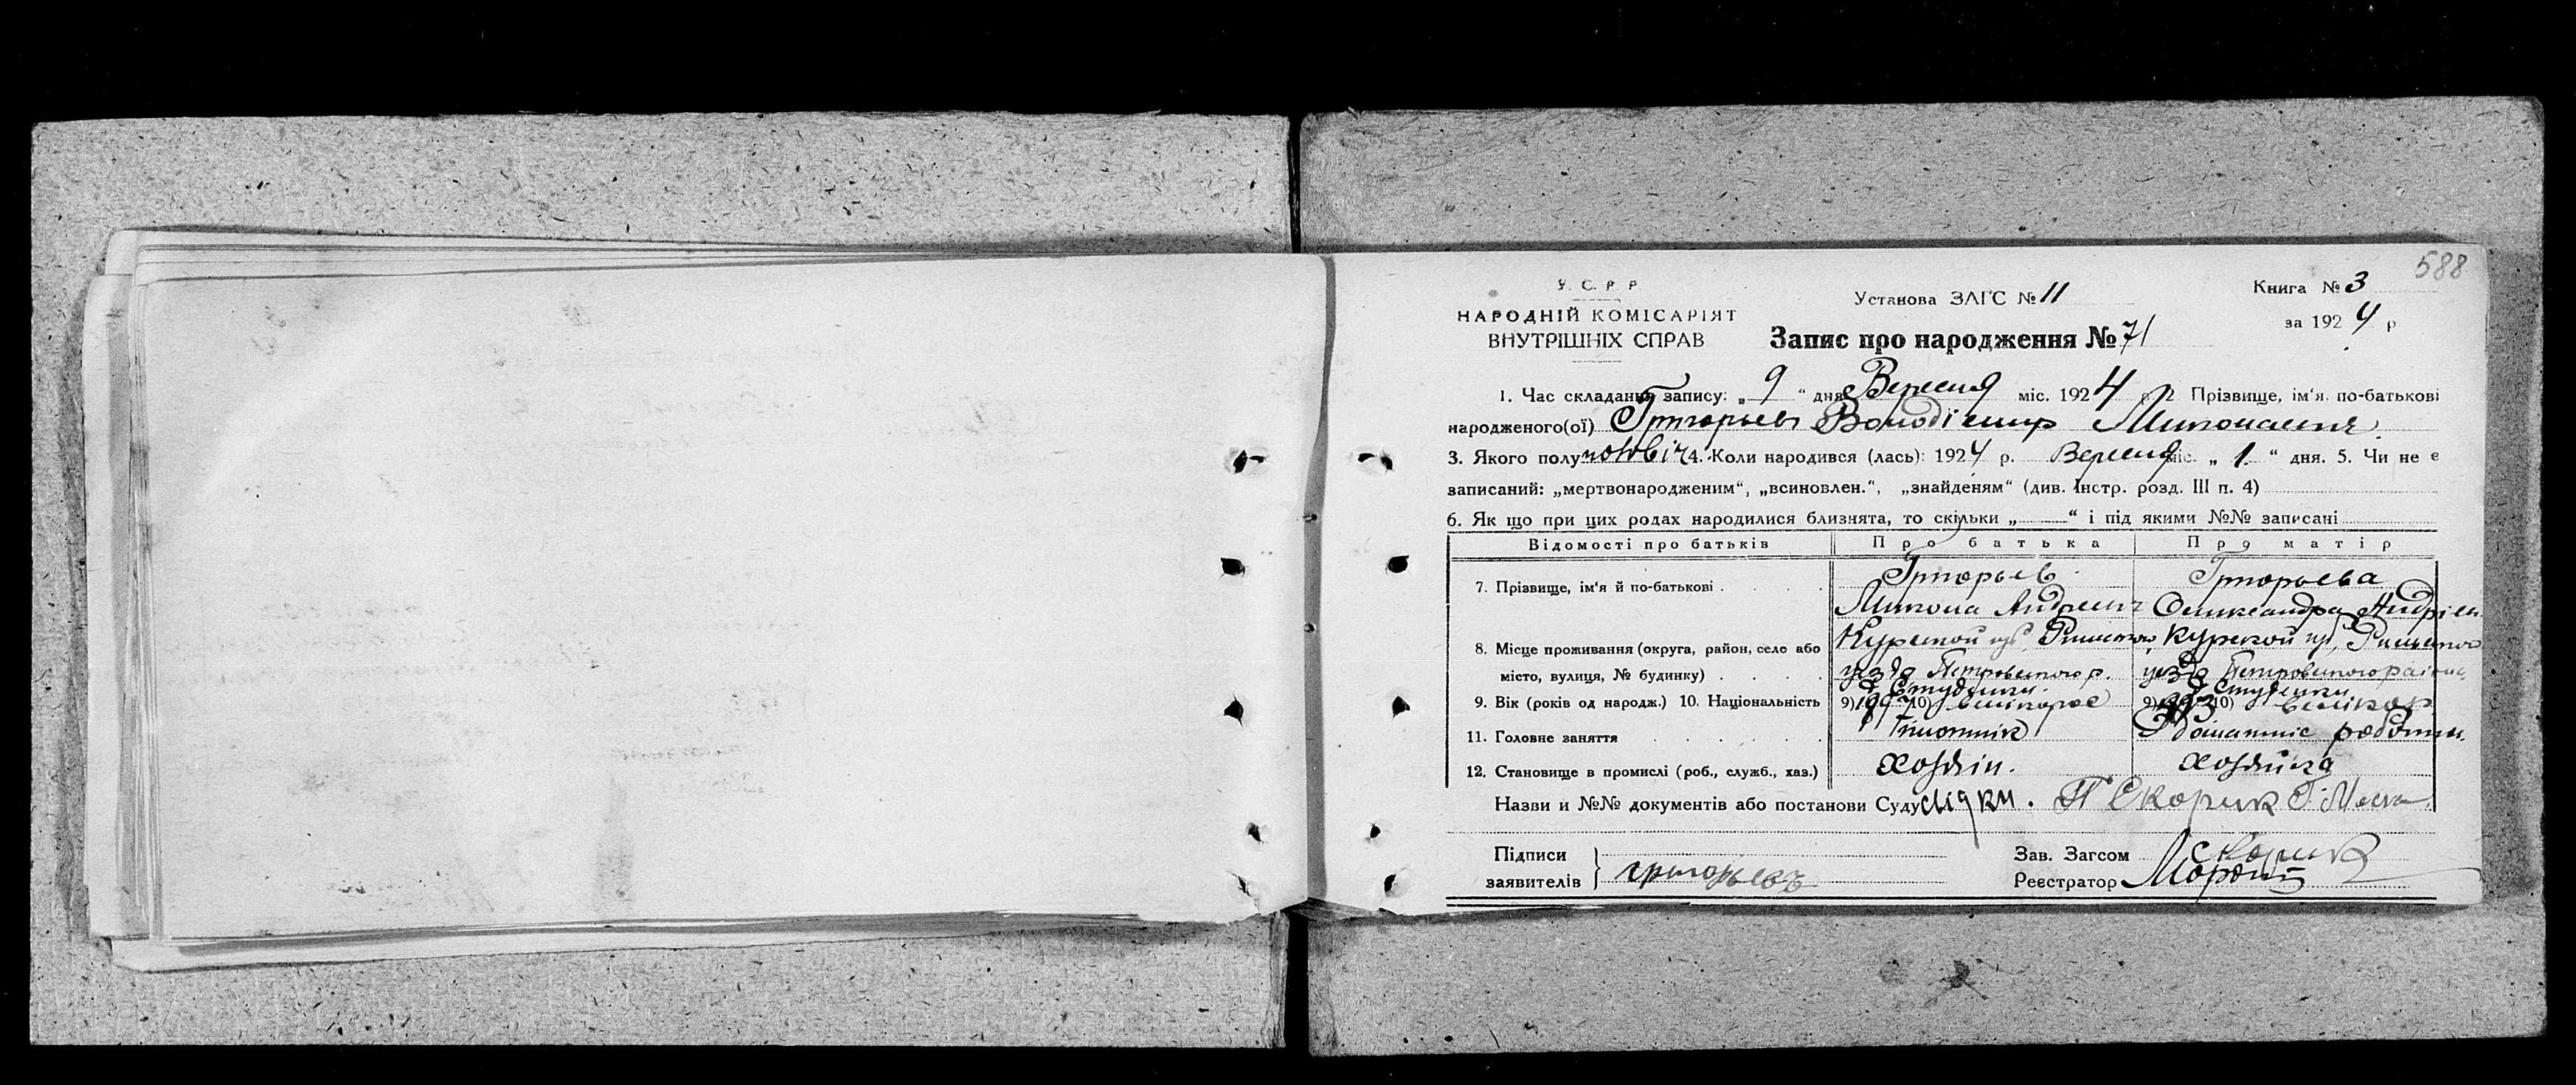 588
У. С. Р. Р.
НАРОДНІЙ КОМІСАРІЯТ
ВНУТРІШНІХ СПРАВ
Установа ЗАГС № 11
Книга № 3
за 1924 р
Запис про народження № 71
1. Час складання запису: „ 9 “ дня Вересня міс. 1924 р. 2 Прізвище, ім'я по-батькові
народженого(ої) Григорьев Володімир Миколаевич
3. Якого полу чоловіч 4. Коли народився (лась): 1924 р. Вересня міс. „ 1 “ дня. 5. Чи не є
записаний: „мертвонародженим“, „всиновлен.“, „знайденям“ (див. Інстр. розд. III п. 4)
6. Як що при цих родах народилися близнята, то скільки „ “ і під якими №№ записані
Відомості про батьків Про батька Про матір
7. Прізвище, ім'я й по-батькові Григорьев Григорьева
Микола Андреевич Олександра Андрієв
8. Місце проживання (округа, район, село або Курской губ. Курской губ.
місто, вулиця, № будинку) уезда Петровского р. уезда Петровского района
с Студенки с Студенки
9. Вік (років од народж.) 10. Національність 9) 10) великорос 9) 10) великор
11. Головне заняття домашніе
12. Становище в промислі (роб., служб., хаз.) хозяін. хозяйка
Назви и №№ документів або постанови Суду свідки. П Скорик
Підписи
заявителів григорьевъ
Зав. Загсом Скорик
Реєстратор